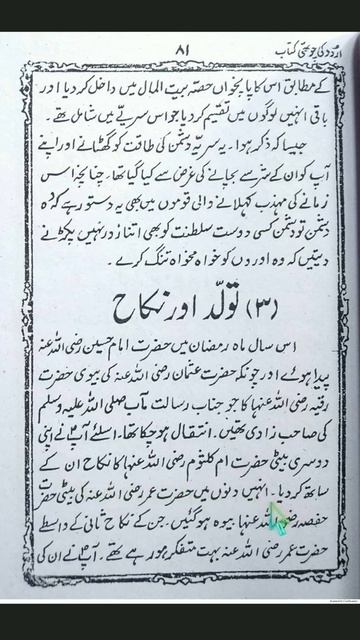 اردو کی چوتھی کتاب
۸۱
کے مطابق اس کا پانچواں حصہ بیت المال میں داخل کر دیا اور
باقی انہیں لوگوں میں تقسیم کر دیا جو اس سریّہ میں شامل تھے۔
جیسا کہ ذکر ہوا۔ یہ سریہ دشمن کی طاقت کو گھٹانے اور اپنے
آپ کو ان کے شر سے بچانے کی غرض سے کیا گیا تھا۔ چنانچہ اس
زمانے کی مہذب کہلانے والی قوموں میں بھی یہ دستور ہے کہ وہ
دشمن تو دشمن کسی دوست سلطنت کو بھی اتنا زور نہیں پکڑنے
دیتیں کہ وہ اوروں کو خواہ مخواہ تنگ کرے۔
(۳) تولّد اور نکاح
اس سال ماہ رمضان میں حضرت امام حسین رضی اللہ عنہ
پیدا ہوئے اور چونکہ حضرت عثمان رضی اللہ عنہ کی بیوی حضرت
رقیہ رضی اللہ عنہا کا جو جناب رسالت مآب صلی اللہ علیہ وسلم
کی صاحب زادی تھیں۔ انتقال ہو چکا تھا۔ اسلئے آپؐ نے اپنی
دوسری بیٹی حضرت ام کلثوم رضی اللہ عنہا کا نکاح ان کے
ساتھ کر دیا۔ انہیں دنوں میں حضرت عمر رضی اللہ عنہ کی بیٹی حضرت
حفصہ رضی اللہ عنہا بیوہ ہو گئیں۔ جن کے نکاح ثانی کے واسطے
حضرت عمر رضی اللہ عنہ بہت متفکر ہو رہے تھے۔ آپؐ نے ان کی